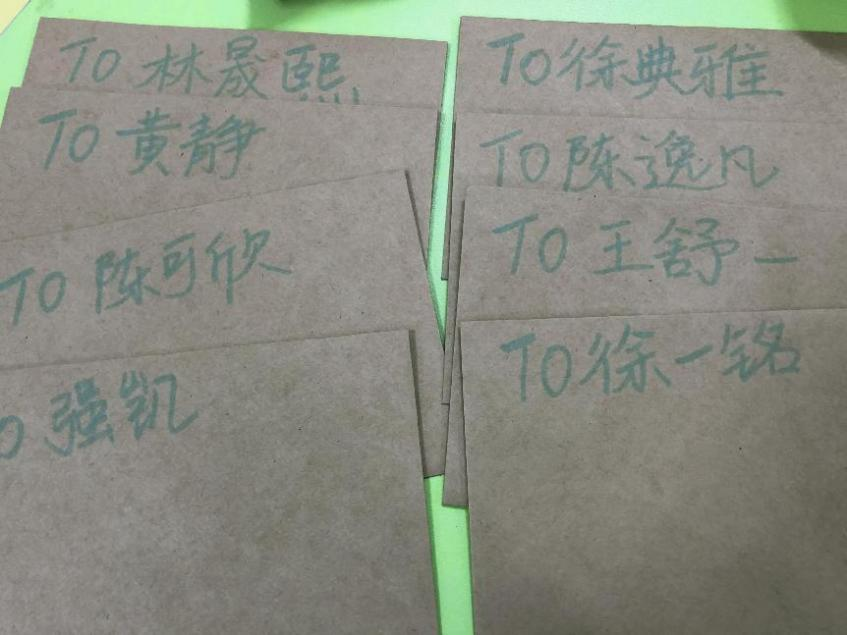 TO 林晟熙
TO 黄静
TO 陈可欣
O 强凯
TO 徐典雅
TO 陈逸凡
TO 王舒一
TO 徐一铭